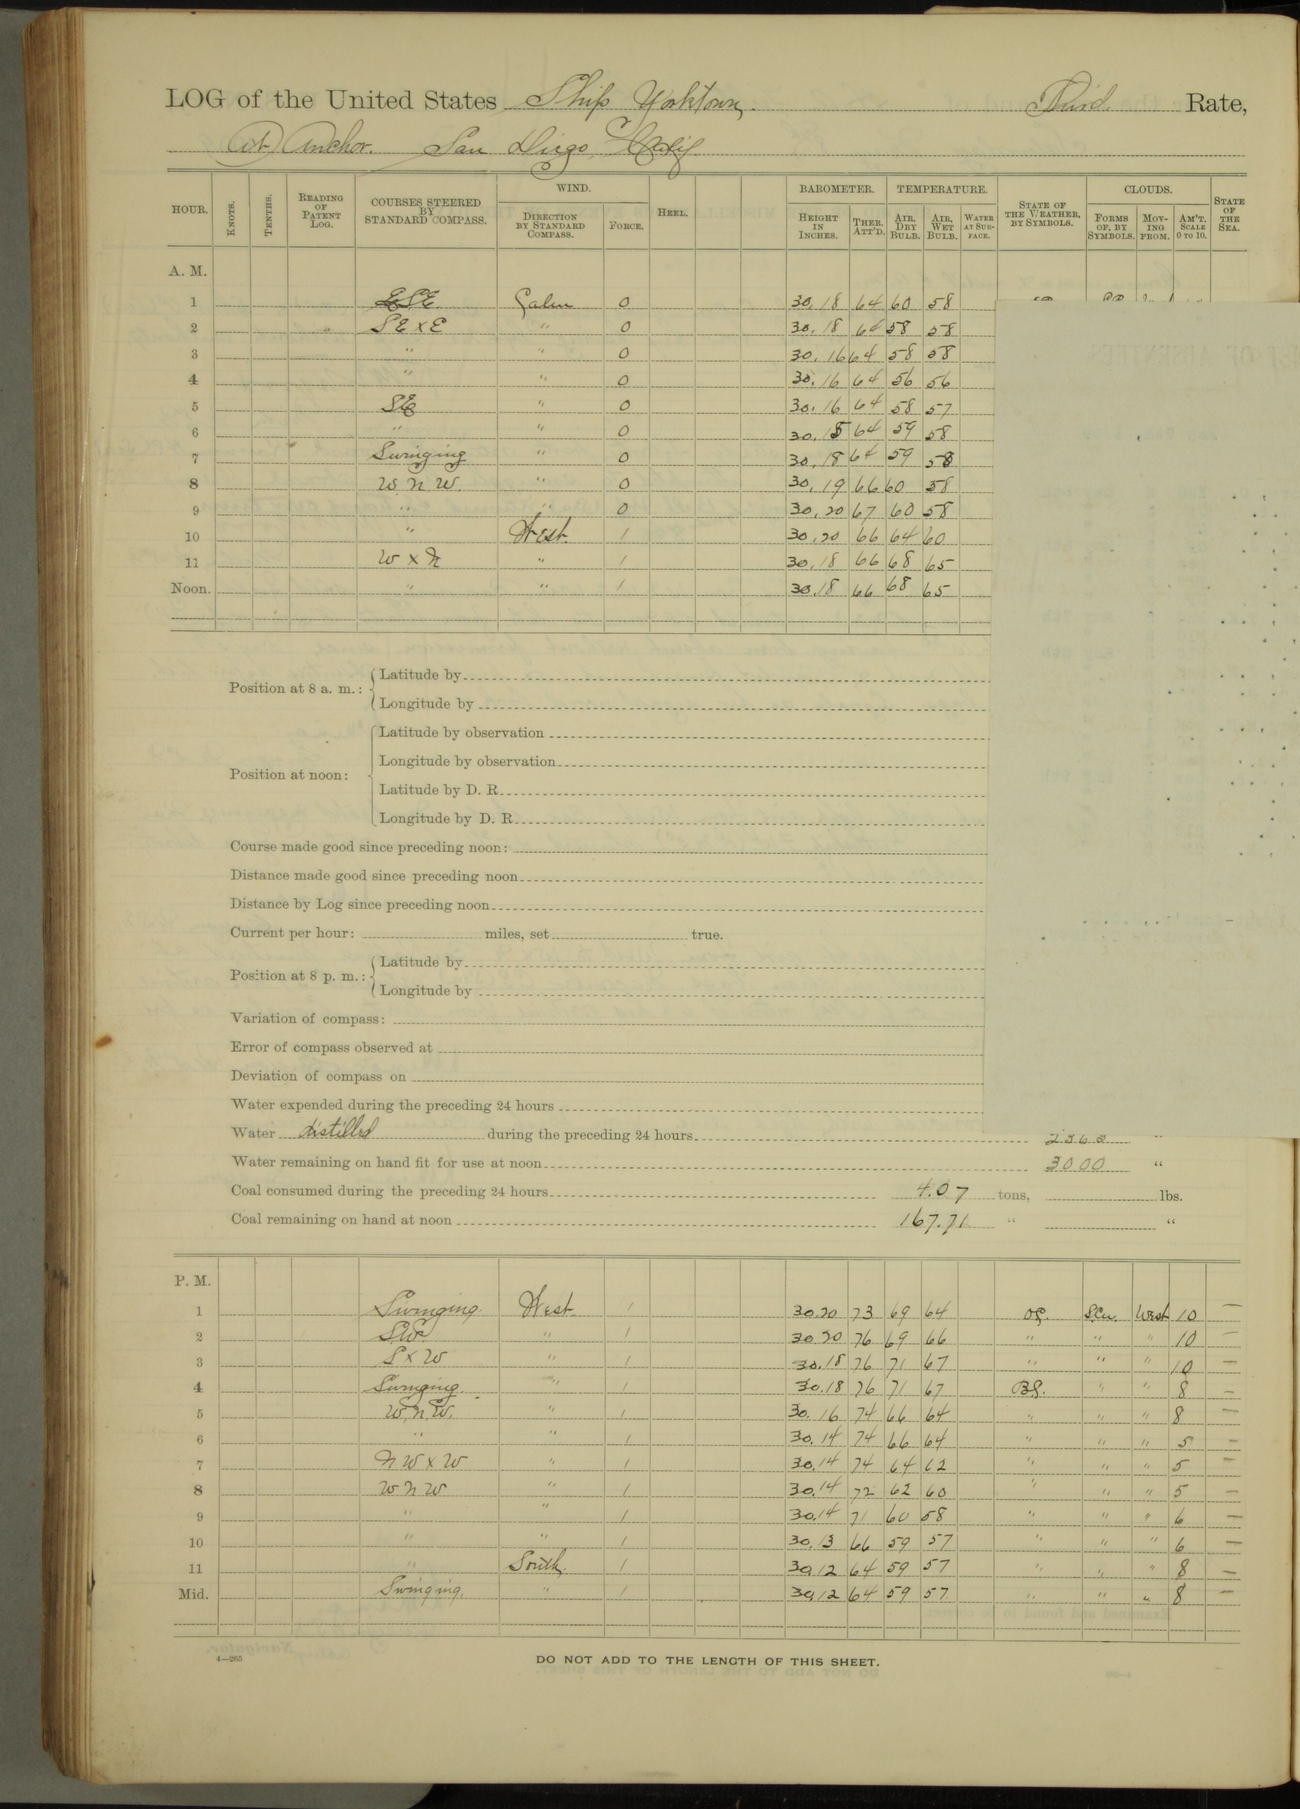 LOG of the United States Ship Yorktown, Third Rate,
At Anchor. San Diego, Calif
HOUR. KNOTS. TENTHS. READING OF PATENT LOG. COURSES STEERED BY STANDARD COMPASS. WIND. DIRECTION BY STANDARD COMPASS. FORCE. HEEL. BAROMETER. HEIGHT IN INCHES. THER. ATT'D. TEMPERATURE. AIR, DRY BULB. AIR, WET BULB. WATER AT SURFACE. STATE OF THE WEATHER, BY SYMBOLS. CLOUDS. FORMS OF, BY SYMBOLS. MOVING FROM. AM'T. SCALE 0 TO 10. STATE OF THE SEA.
A. M.
1 ESE Calm 0 30.18 64 60 58
2 SE x E " 0 30.18 64 58 58
3 " " 0 30.16 64 58 58
4 " " 0 30.16 64 56 56
5 SE " 0 30.16 64 58 57
6 " " 0 30.15 64 59 58
7 Swinging " 0 30.18 64 59 58
8 W.N.W. " 0 30.19 66 60 58
9 " " 0 30.20 67 60 58
10 " West. 1 30.20 66 64 60
11 W x N " 1 30.18 66 68 65
Noon. " " 1 30.18 66 68 65
Position at 8 a. m.: Latitude by
Longitude by
Position at noon: Latitude by observation
Longitude by observation
Latitude by D. R.
Longitude by D. R.
Course made good since preceding noon:
Distance made good since preceding noon
Distance by Log since preceding noon
Current per hour: miles, set true.
Position at 8 p. m.: Latitude by
Longitude by
Variation of compass:
Error of compass observed at
Deviation of compass on
Water expended during the preceding 24 hours
Water distilled during the preceding 24 hours "
Water remaining on hand fit for use at noon 3000 "
Coal consumed during the preceding 24 hours 4.07 tons, lbs.
Coal remaining on hand at noon 167.71 " "
P. M.
1 Swinging. West 1 30.20 73 69 64 O.C. S.Cu. West 10 —
2 SW. " 1 30.20 76 69 66 " " " 10 —
3 S x W " 1 30.18 76 71 67 " " " 10 —
4 Swinging. " 1 30.18 76 71 67 B.C. " " 8 —
5 W.N.W. " 1 30.16 74 66 64 " " " 8 —
6 " " 1 30.14 74 66 64 " " " 5 —
7 NW x W " 1 30.14 74 64 62 " " " 5 —
8 WNW " 1 30.14 72 62 60 " " " 5 —
9 " " 1 30.14 71 60 58 " " " 6 —
10 " " 1 30.13 66 59 57 " " " 6 —
11 " South. 1 30.12 64 59 57 " " " 8 —
Mid. Swinging. " 1 30.12 64 59 57 " " " 8 —
4—265
DO NOT ADD TO THE LENGTH OF THIS SHEET.